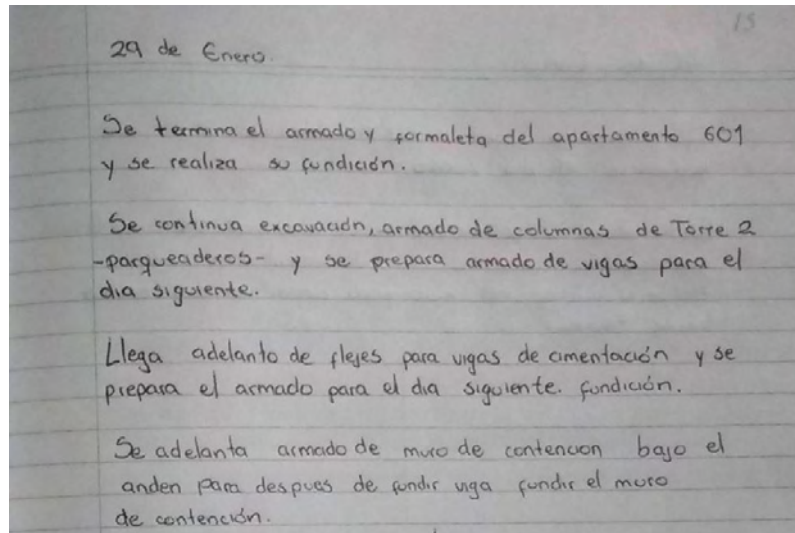 15
29 de Enero.
Se termina el armado y formaleta del apartamento 601
y se realiza su fundición.
Se continua excavación, armado de columnas de Torre 2
-parqueaderos- y se prepara armado de vigas para el
dia siguiente.
Llega adelanto de flejes para vigas de cimentación y se
prepara el armado para el dia siguiente. fundición.
Se adelanta armado de muro de contencion bajo el
anden para despues de fundir viga fundir el muro
de contención.